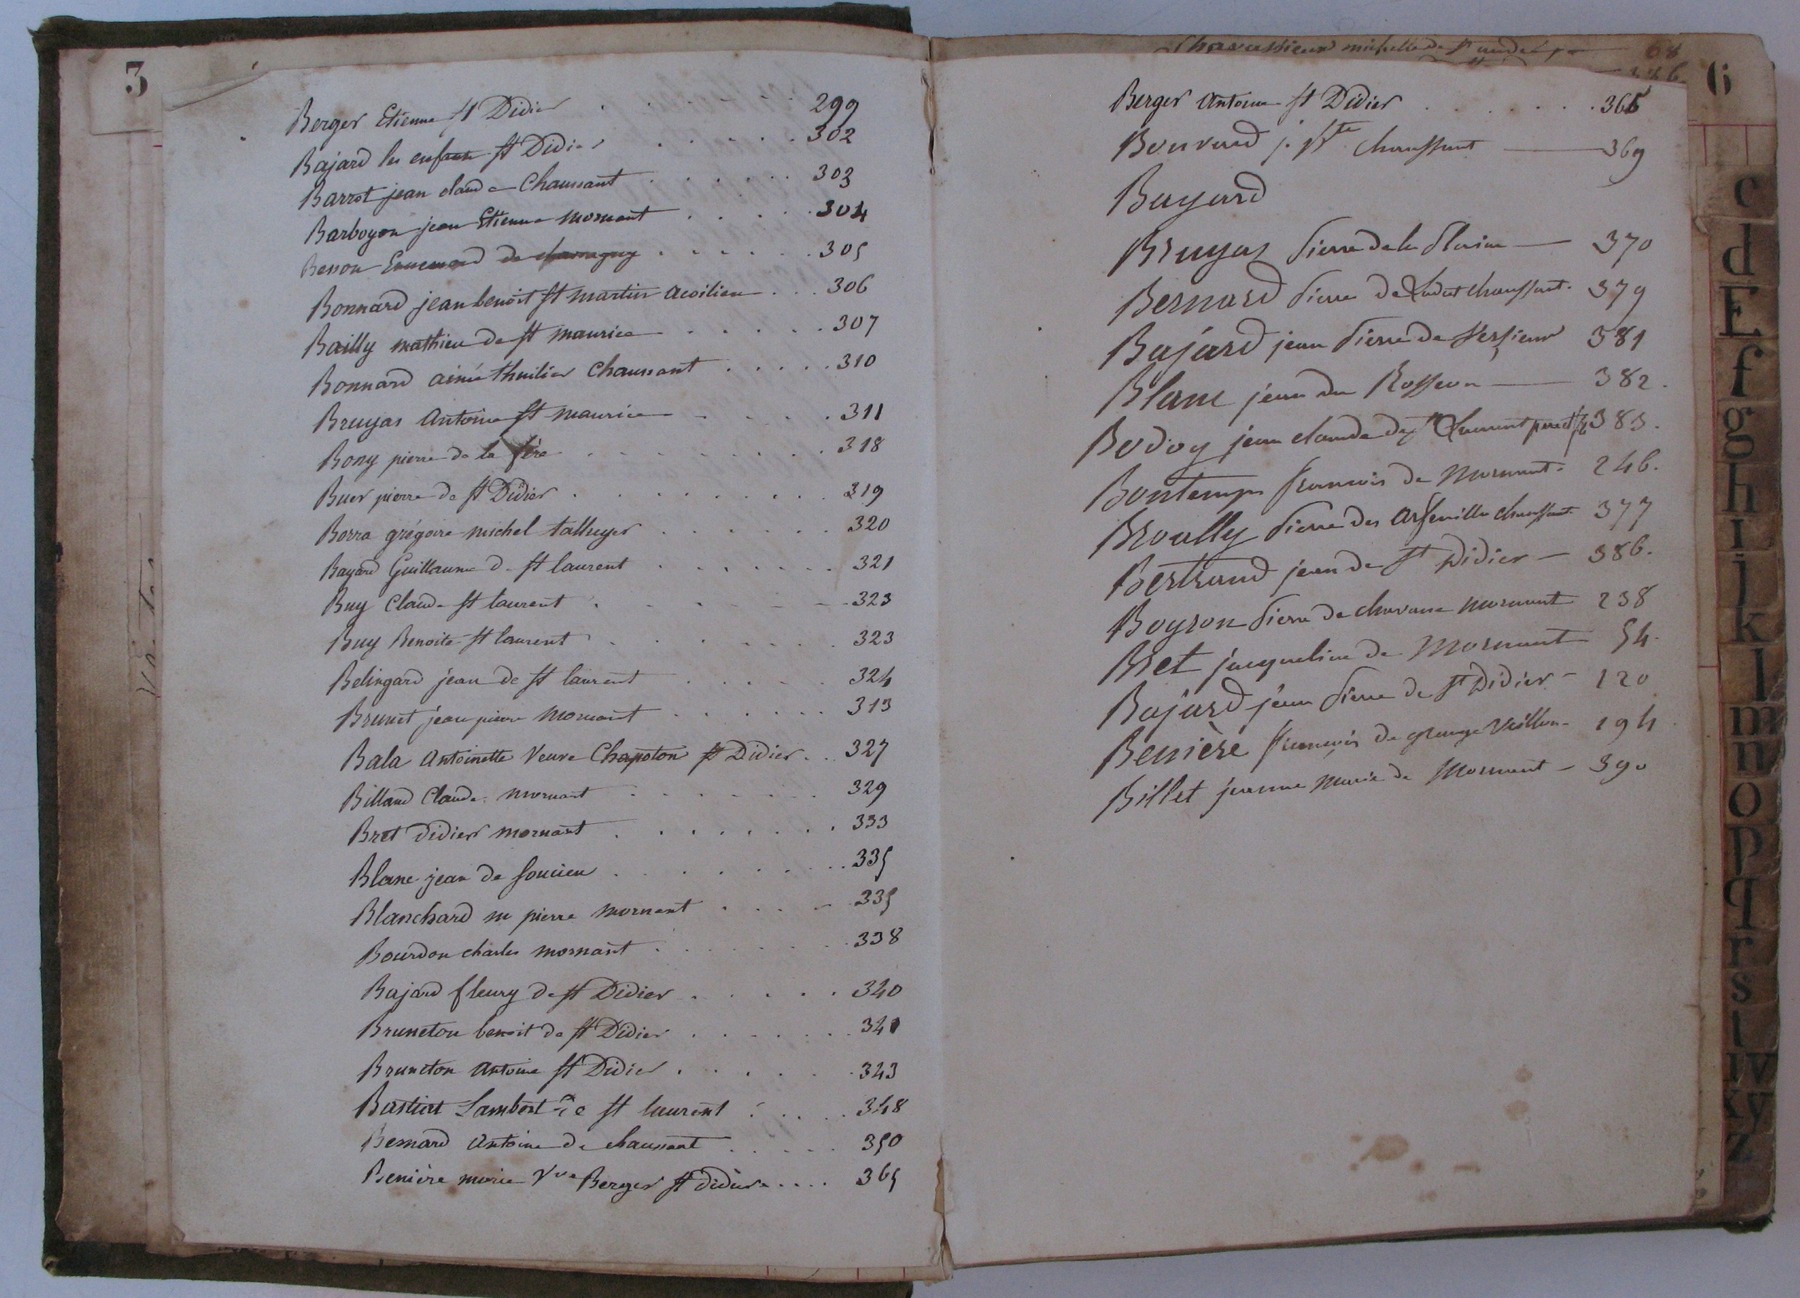 3
Berger Etienne St Didier 299
Bajard les enfans St Didier 302
Barrot jean claude Chaussant 303
Barboyon jean Etienne mornant 304
Besson Ennemond de chassagny 305
Bonnard jean benoit St martin acoilieu 306
Bailly mathieu de St maurice 307
Bonnard aimé thuilier Chaussant 310
Bruyas Antoine St maurice 311
Bony pierre de la fère 318
Buer pierre de St Didier 319
Borra grégoire michel talluyer 320
Bayard Guillaume de St laurent 321
Buy Claude St laurent 323
Buy Benoite St laurent 323
Belingard jean de St laurent 324
Brunet jean pierre Mornant 313
Bala Antoinette Veuve Chapoton St Didier 327
Billand Claude mornant 329
Bret didier mornant 333
Blanc jean de Soucieu 335
Blanchard m pierre mornant 335
Bourdon charles mornant 338
Bajard fleury de St Didier 340
Bruneton benoit de St Didier 341
Bruneton Antoine St Didier 343
Bastiat Lambert de St laurent 348
Bernard Antoine de chaussant 350
Benière marie Vve Berger St didier 365
68
6
Berger Antoine St Didier 366
Bouvard j. Bte Chaussant 369
Bayard
Bruyas Pierre de la Plaine 370
Bernard Pierre de chaussant 379
Bajard jean Pierre de 381
Blanc jean du Rosseon 382
Bodoy jean claude de St Laurent 383
Bontemps francois de Mornant 246
Broally Pierre des chaussant 377
Bertrand jean de St Didier 386
Boyron Pierre de chavanne mornant 238
Bret jacqueline de Mornant 54
Bajard jean Pierre de St Didier 120
Benière francois de grange 194
Billet jeanne marie de Mornant 390
c
d
E
f
g
h
i
j
k
l
m
n
o
p
q
r
s
z